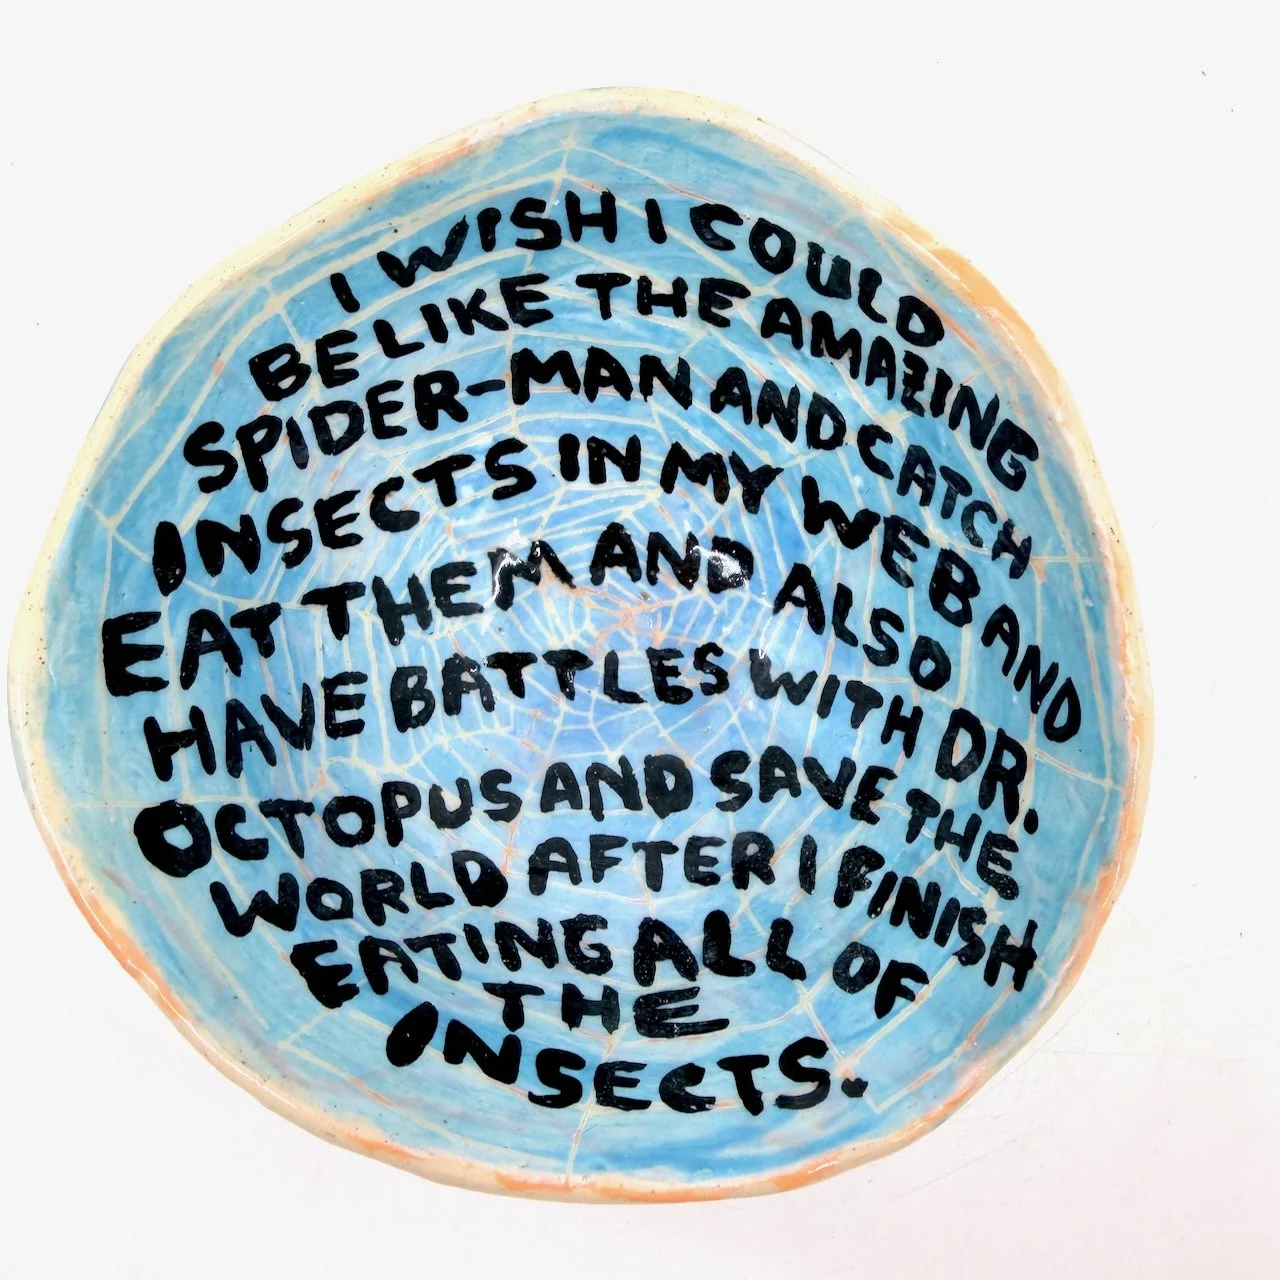 I WISH I COULD
BE LIKE THE AMAZING
SPIDER-MAN AND CATCH
INSECTS IN MY WEB AND
EAT THEM AND ALSO
HAVE BATTLES WITH DR.
OCTOPUS AND SAVE THE
WORLD AFTER I FINISH
EATING ALL OF
THE
INSECTS.